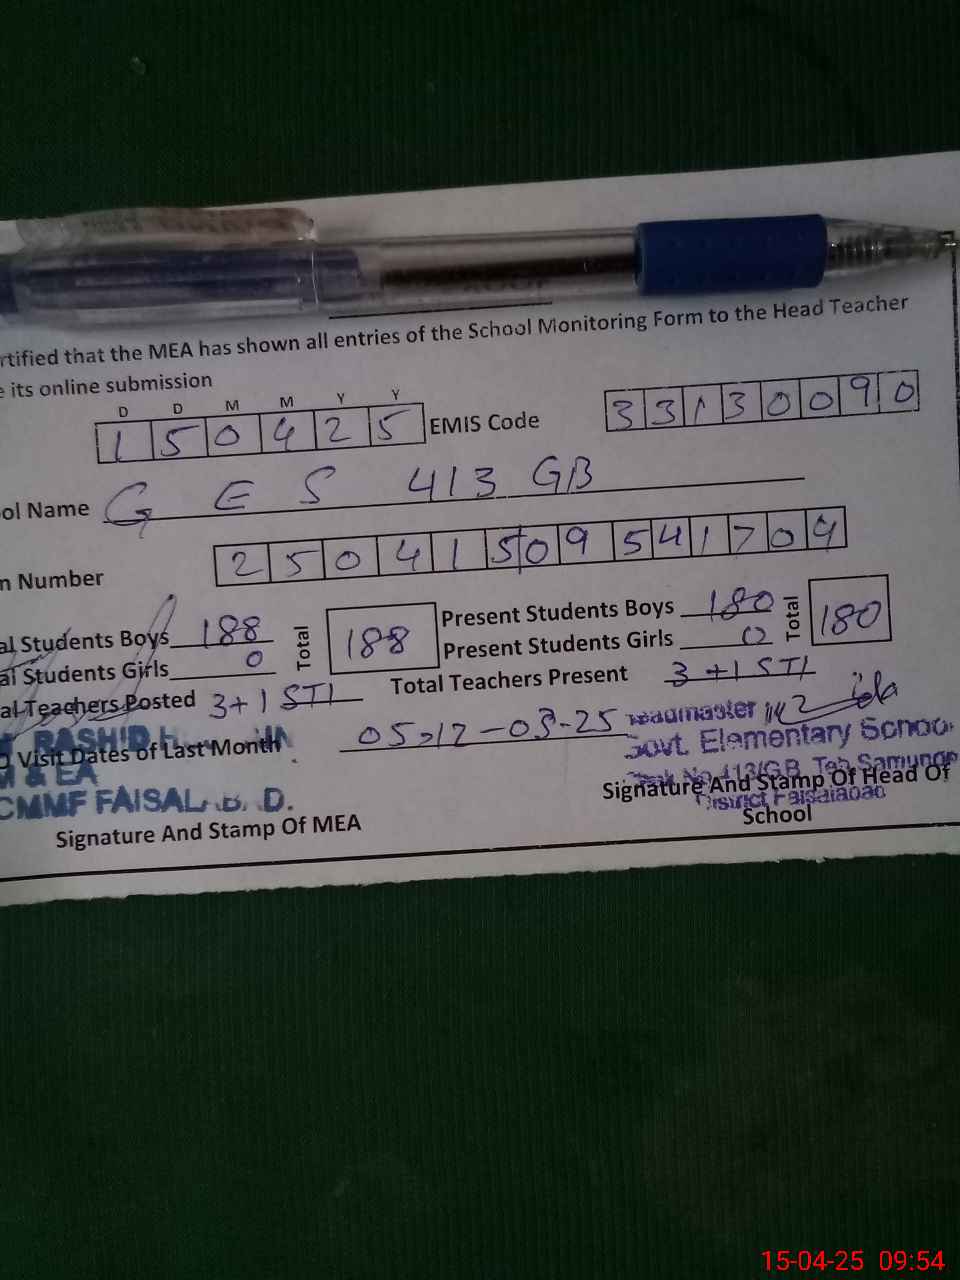 rtified that the MEA has shown all entries of the School Monitoring Form to the Head Teacher
e its online submission
D D M M Y Y
1 5 0 4 2 5 EMIS Code 3 3 1 3 0 0 9 0
ol Name G E S 413 GB
n Number 2 5 0 4 1 5 0 9 5 4 1 7 0 4
al Students Boys 188 Total 188 Present Students Boys 180 Total 180
al Students Girls 0 Present Students Girls 0
al Teachers Posted 3+1 STI Total Teachers Present 3+1 STI
RASHID
Visit Dates of Last Month 05,12-03-25
Headmaster
Govt. Elementary School
& EA
413/GB, Teh Samundr
CMMF FAISALABAD.
District Faisalabad
Signature And Stamp Of MEA
Signature And Stamp Of Head Of
School
15-04-25 09:54